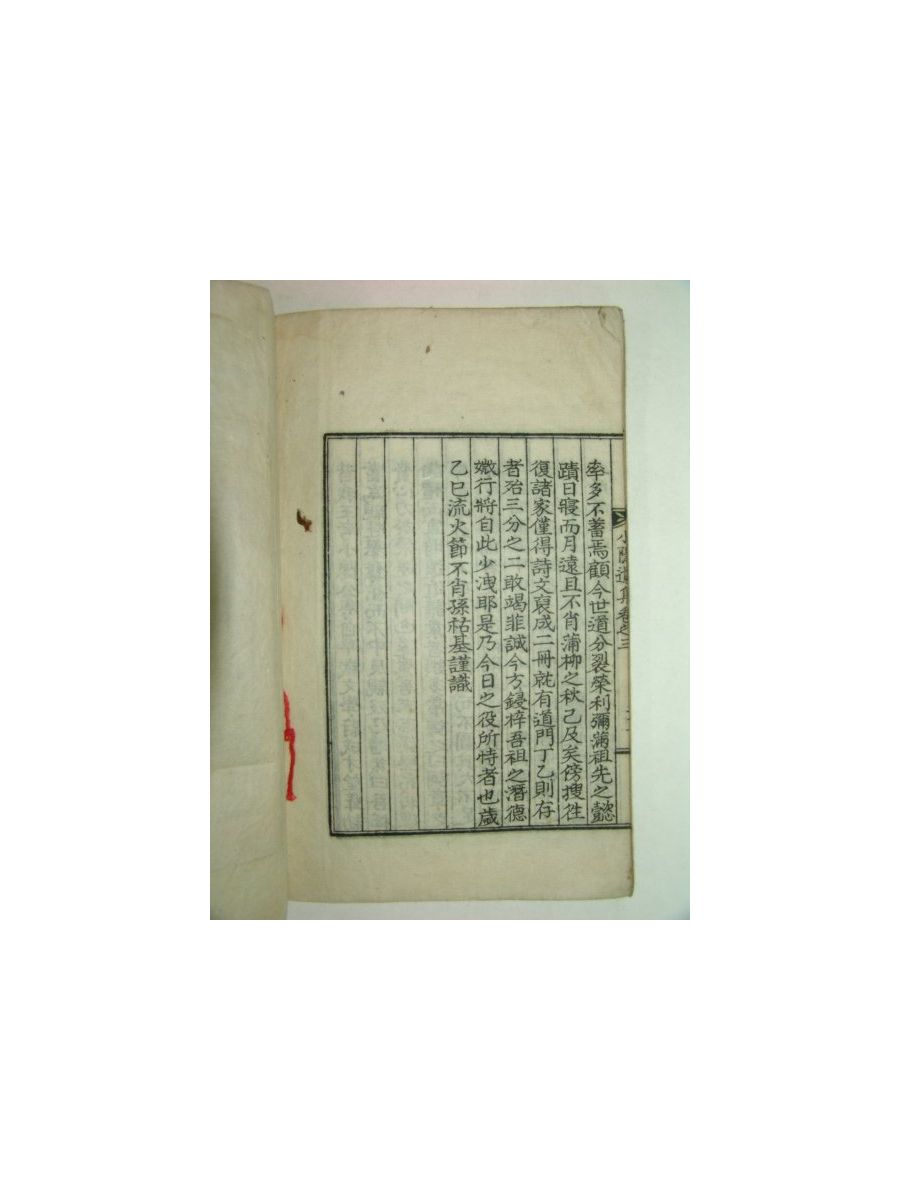 率多不蓄焉顧今世道分裂榮利彌滿祖先之懿
蹟日寢而月遠且不肖蒲柳之秋已及矣傍搜徃
復諸家僅得詩文裒成二冊就有道門丁乙則存
者殆三分之二敢竭菲誠今方鋟梓吾祖之潛德
媺行將自此少洩耶是乃今日之役所恃者也歲
乙巳流火節不肖孫祜基謹識